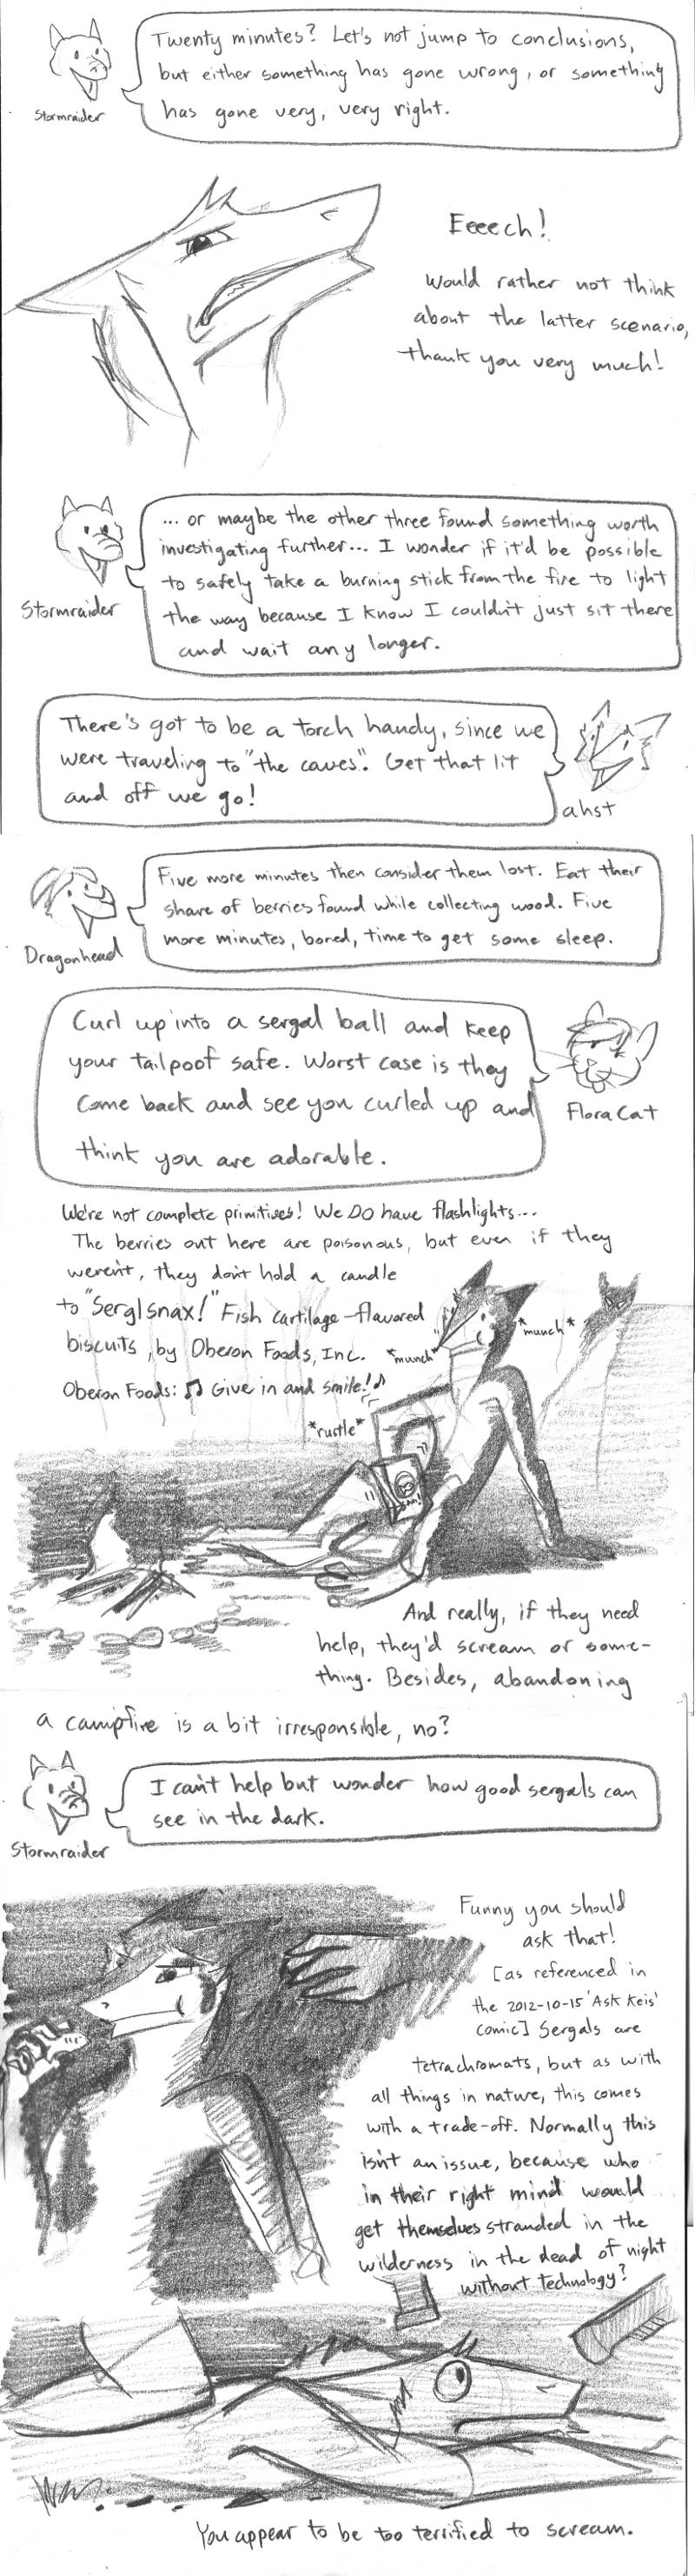 Twenty minutes? Let's not jump to conclusions,
but either something has gone wrong, or something
has gone very, very right.
Stormraider
Eeeech!
Would rather not think
about the latter scenario,
thank you very much!
... or maybe the other three found something worth
investigating further... I wonder if it'd be possible
to safely take a burning stick from the fire to light
the way because I know I couldn't just sit there
and wait any longer.
Stormraider
There's got to be a torch handy, since we
were traveling to "the caves". Get that lit
and off we go!
ahst
Five more minutes then consider them lost. Eat their
share of berries found while collecting wood. Five
more minutes, bored, time to get some sleep.
Dragonhead
Curl up into a sergal ball and keep
your tailpoof safe. Worst case is they
come back and see you curled up and
think you are adorable.
FloraCat
We're not complete primitives! We DO have flashlights...
The berries out here are poisonous, but even if they
weren't, they don't hold a candle
to "Serglsnax!" Fish cartilage-flavored
biscuits, by Oberon Foods, Inc.
*munch*
*munch*
Oberon Foods: ♫ Give in and smile! ♪
*rustle*
And really, if they need
help, they'd scream or some-
thing. Besides, abandoning
a campfire is a bit irresponsible, no?
I can't help but wonder how good sergals can
see in the dark.
Stormraider
Funny you should
ask that!
[as referenced in
the 2012-10-15 'Ask Keis'
comic] Sergals are
tetrachromats, but as with
all things in nature, this comes
with a trade-off. Normally this
isn't an issue, because who
in their right mind would
get themselves stranded in the
wilderness in the dead of night
without technology?
You appear to be too terrified to scream.